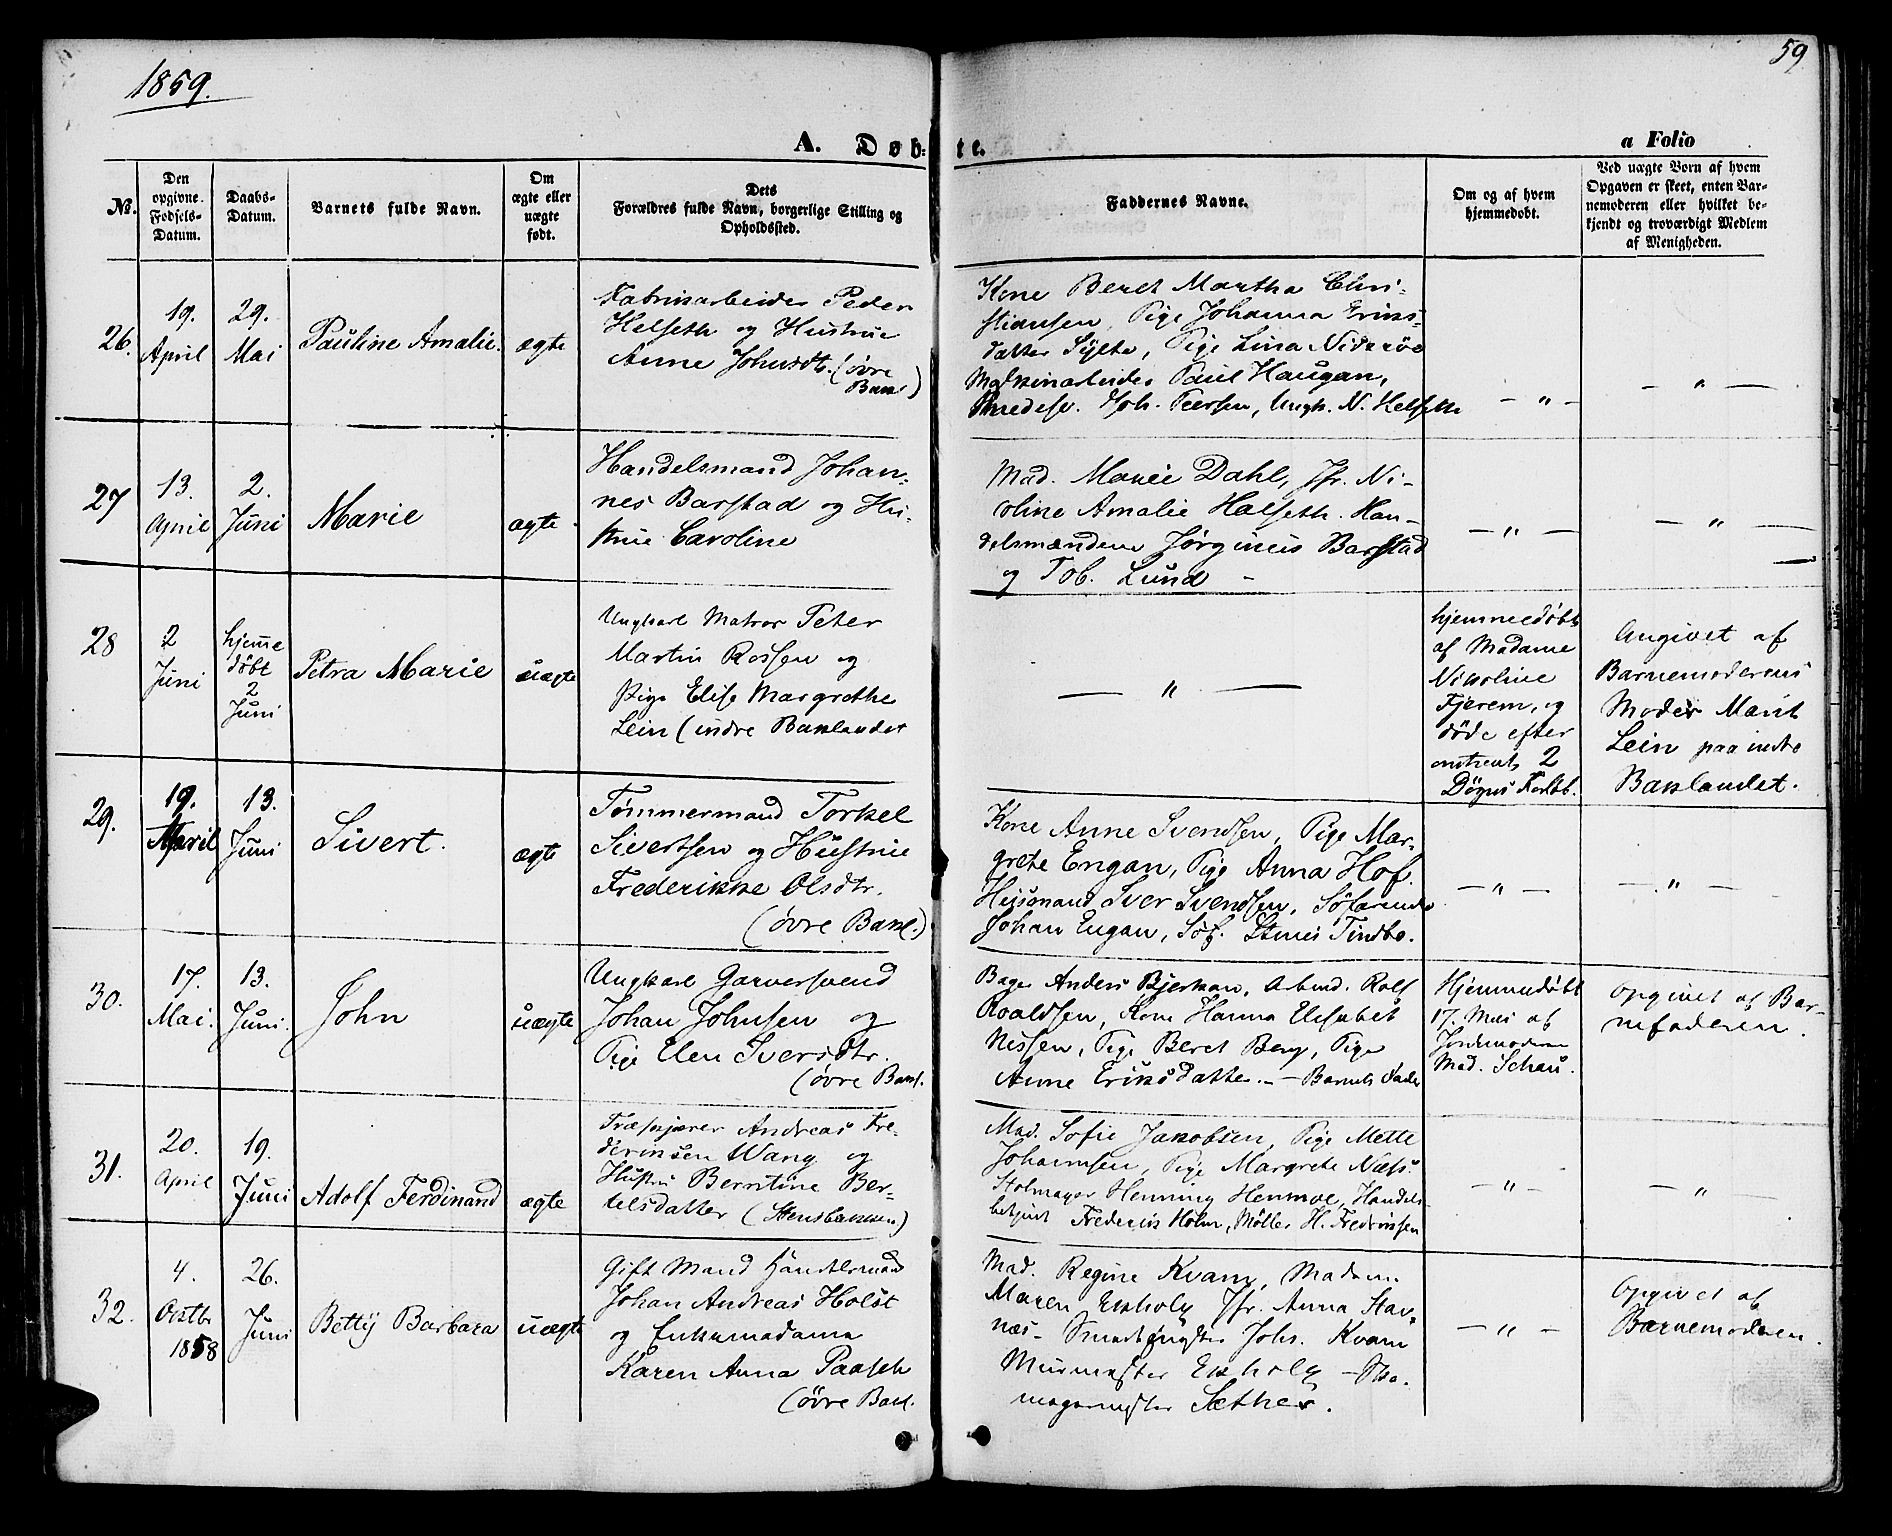 1859.
59
A. Døb-
te.
a Folio
No.
Den
opgivne
Fødsels-
Datum.
Daabs-
Datum.
Barnets fulde Navn.
Om
ægte eller
uægte
født.
Dets
Forældres fulde Navn, borgerlige Stilling og
Opholdssted.
Faddernes Navne.
Om og af hvem
hjemmedøbt.
Ved uægte Børn af hvem
Opgaven er skeet, enten Bar-
nemoderen eller hvilket be-
kjendt og troværdigt Medlem
af Menigheden.
26.
19.
April
29.
Mai
Pauline Amalie.
ægte
Fabrikarbeider Peder
Helseth og Hustrue
Anne Johnsdt. (øvre
Bakl)
Kone Beret Martha Chri-
stiansen, Pige Johanna Eriks-
datter Sylte, Pige Lina Nidarøe
Paul Haugan,
Joh. Peersen, Ungk. N. Helseth
— " —
— " —
27
13.
April
2.
Juni
Marie
ægte
Handelsmand Johan-
nes Barstad og Hu-
strue Caroline
Mad. Marie Dahl, Jfr. Ni-
coline Amalie Halseth. Han-
delsmændene Jørginus Barstad
og Tob. Lund —
— " —
— " —
28
2
Juni
hjemme
døbt
2
Juni
Petra Marie
uægte
Ungkarl Matros Peter
Martin Rossen og
Pige Elise Margrethe
Lein (indre Baklandet
— " —
hjemmedøbt
af Madame
Nikoline
Fjerem, og
døde efter
omtrent 2
Døgns Forløb.
Angivet af
Barnemoderens
Moder Marit
Lein paa indre
Baklandet.
29.
19.
April
13.
Juni
Sivert.
ægte
Tømmermand Torkel
Sivertsen og Hustrue
Frederikke Olsdtr.
(øvre Bakl.)
Kone Anne Svendsen, Pige Mar-
grete Engan, Pige Anna Hof.
Husmand Iver Svendsen, Søfarende
Johan Engan, Søf. Tindbo.
— " —
— " —
30.
17.
Mai.
13.
Juni.
John
uægte
Ungkarl Garversvend
Johan Johnsen og
Pige Elen Iversdtr.
(øvre Bakl.
Bager Anders Bjerkan, Arbmd. Rolf
Roaldsen, Kone Hanna Elisabet
Nissen, Pige Beret Berg, Pige
Anne Eriksdatter. — Barnets Fader
Hjemmedøbt
17. Mai af
Jordemoderen
Mad. Schau.
Opgivet af Bar-
nefaderen.
31.
20.
April
19.
Juni
Adolf Ferdinand
ægte
Træskjærer Andreas Fre-
deriksen Wang og
Hustru Berntine Ber-
telsdatter (Stensbakken.)
Mad. Sofie Jakobsen, Pige Mette
Johannsen, Pige Margrete Næss.
Stolmager Henning Henmoe, Handels-
betjent Frederik Holm, Møller H. Fredriksen
— " —
— " —
32.
4.
Octbr
1858
26.
Juni
Betty Barbara
uægte
Gift Mand Handelsmand
Johan Andreas Holst
og Enkemadame
Karen Anna Paasch
(øvre Bakl.
Mad. Regine Kvam, Madam
Maren Ekholg Jfr. Anna Stav-
næs — Smedmester Johs. Kvam
Murmester Ekholg — Sko-
magermester Sæther.
— " —
Opgivet af
Barnemoderen.